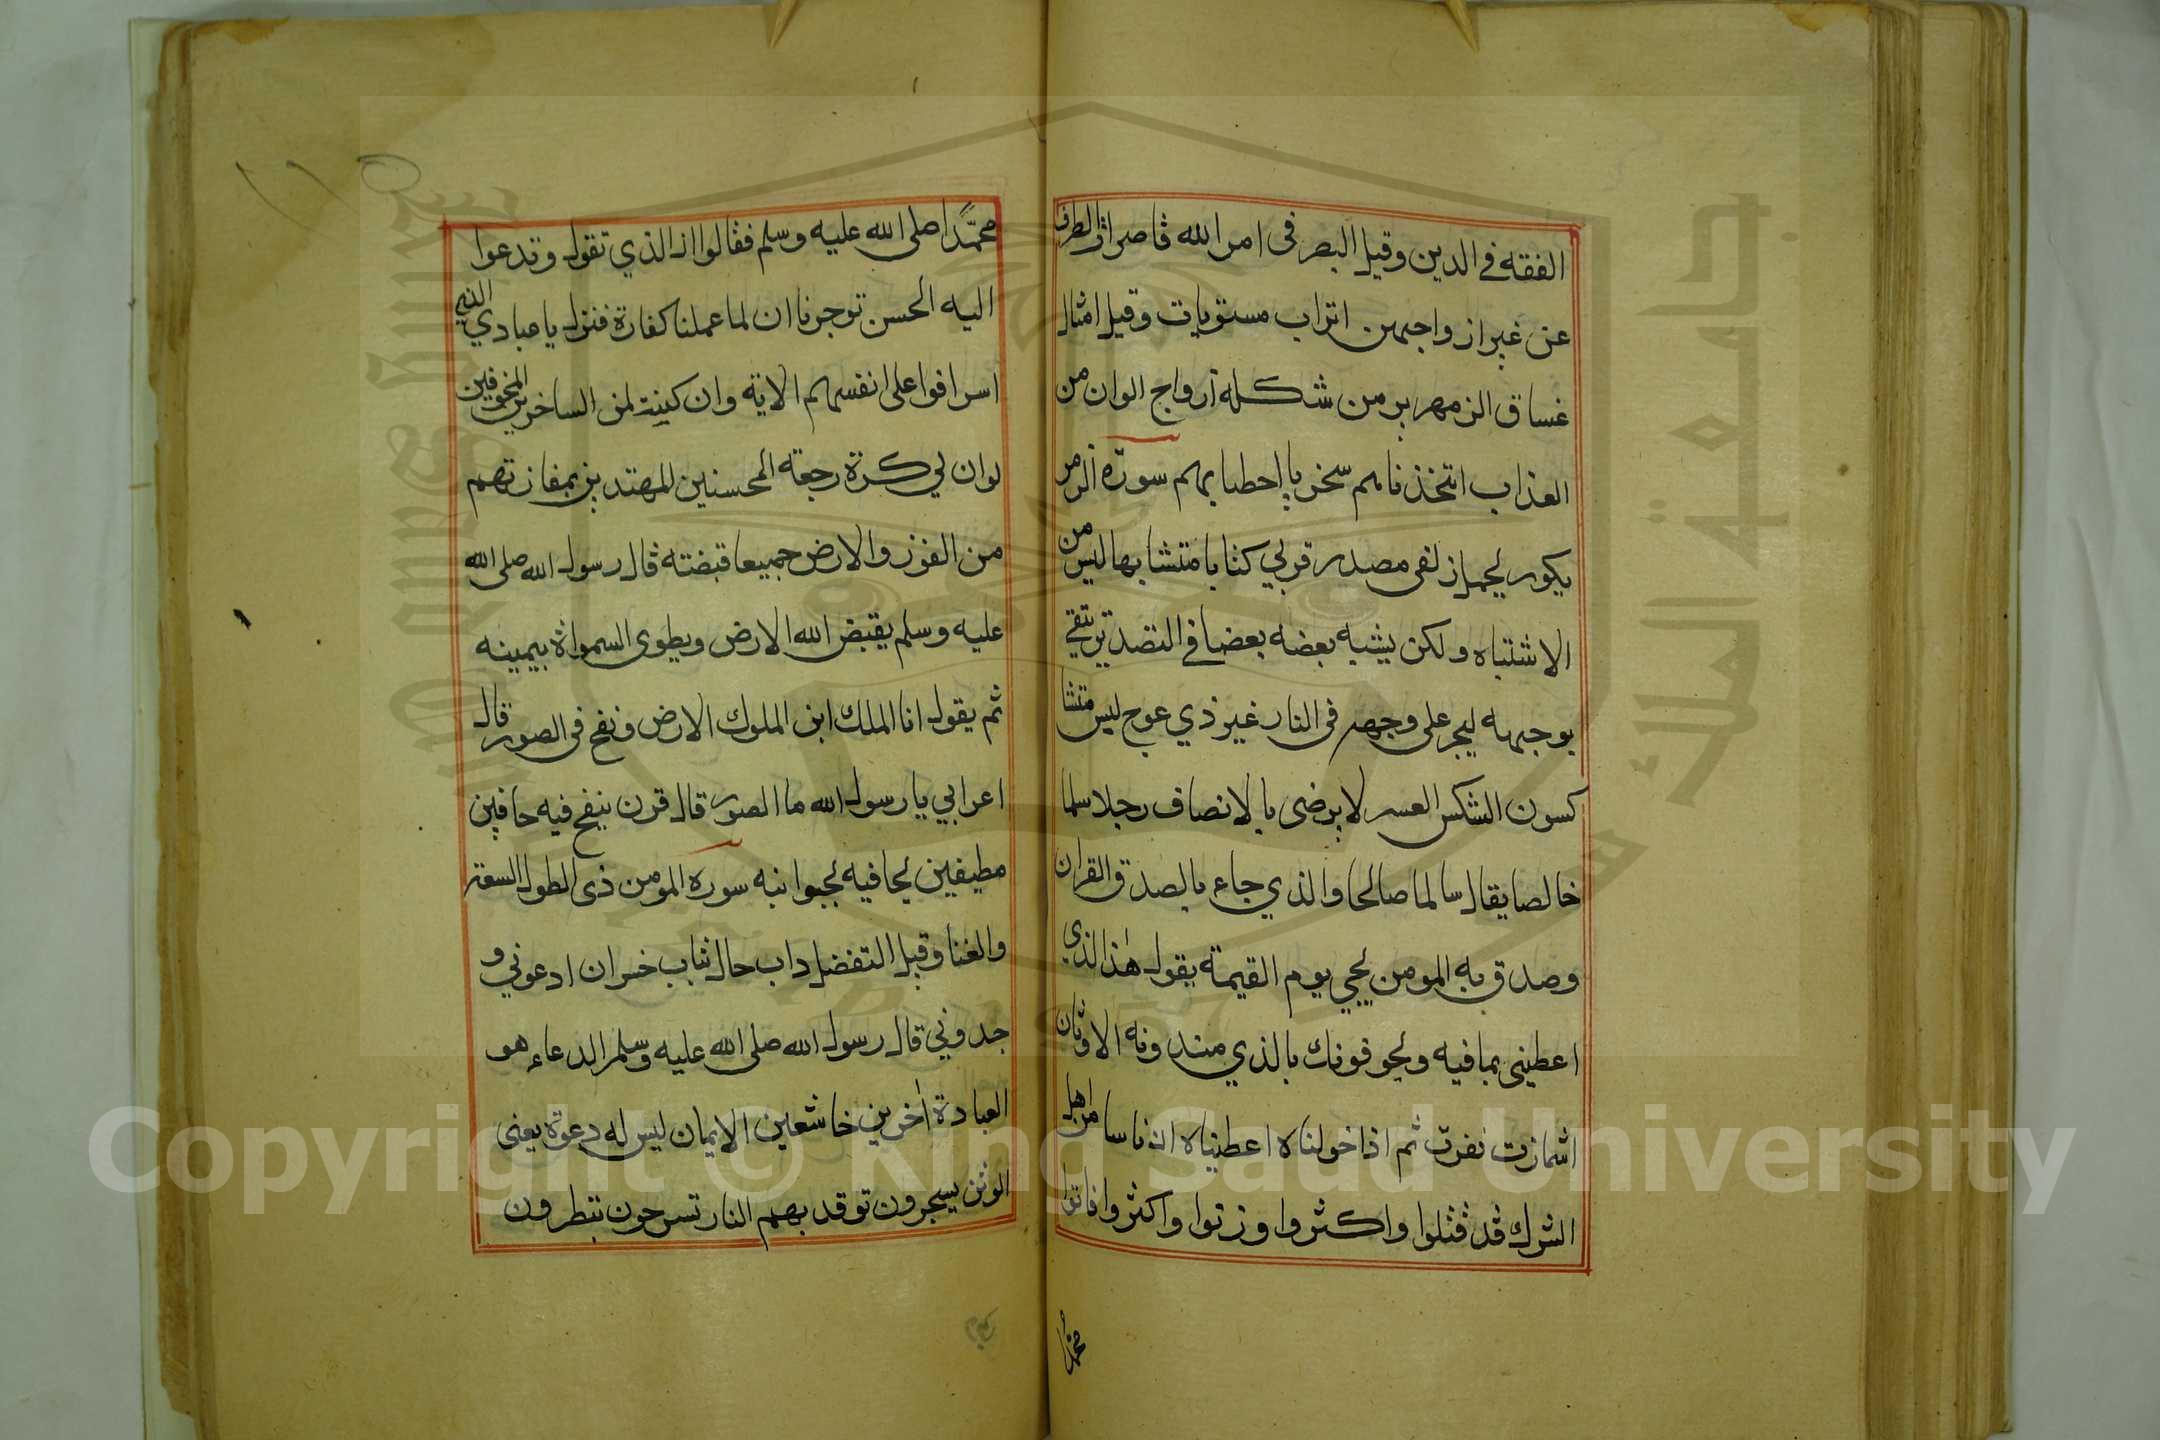 الفقه في الدين وقيل البصر في امر الله قاصرات الطرف
عن غير ازواجهن اتراب مستويات وقيل امثال
غساق الزمهرير من شكله ازواج الوان من
العذاب اتخذناهم سخريا احطنا بهم سورة الزمر
يكور يحمل زلفى مصدر قربي كتابا متشابها ليس من
الاشتباه ولكن يشبه بعضه بعضا في التصديق يتقي
بوجهه يجر على وجهه في النار غير ذي عوج ليس متشا
كسون الشكس العسر لا يرضى بالانصاف رجلا سلما
خالصا يقال سالما صالحا والذي جاء بالصدق القران
وصدق به المومن يجي يوم القيمة يقول هذا الذي
اعطيني بما فيه ويخوفونك بالذي من دونه الاوثان
اشمازت نفرت ثم اذا خولناه اعطيناه ان ناسا من اهل
الشرك قد قتلوا واكثروا وزنوا واكثروا فاتوا
محمدا
محمدا صلى الله عليه وسلم فقالوا ان الذي تقول وتدعوا
اليه الحسن توجرنا ان لما عملنا كفارة فنزل يا عبادي الذين
اسرافوا على انفسهم الاية وان كنت لمن الساخرين المخوفين
لو ان لي كرة رجعة المحسنين المهتدين بمفازتهم
من الفوز والارض جميعا قبضته قال رسول الله صلى الله
عليه وسلم يقبض الله الارض ويطوى السمواة بيمينه
ثم يقول انا الملك اين الملوك الارض ونفخ في الصور قال
اعرابي يا رسول الله ما الصور قال قرن ينفخ فيه حافين
مطيفين بحافيه بجوانبه سورة المومن ذى الطول السعة
والغنا وقيل التفضل داب حال تباب خسران ادعوني و
حدوني قال رسول الله صلى الله عليه وسلم الدعاء هو
العبادة اخرين خاشعين الايمان ليس له دعوة يعني
الوثن يسجرون توقد بهم النار تمرحون تبطرون
جامعة الملك سعود
King Saud University
Copyright © King Saud University